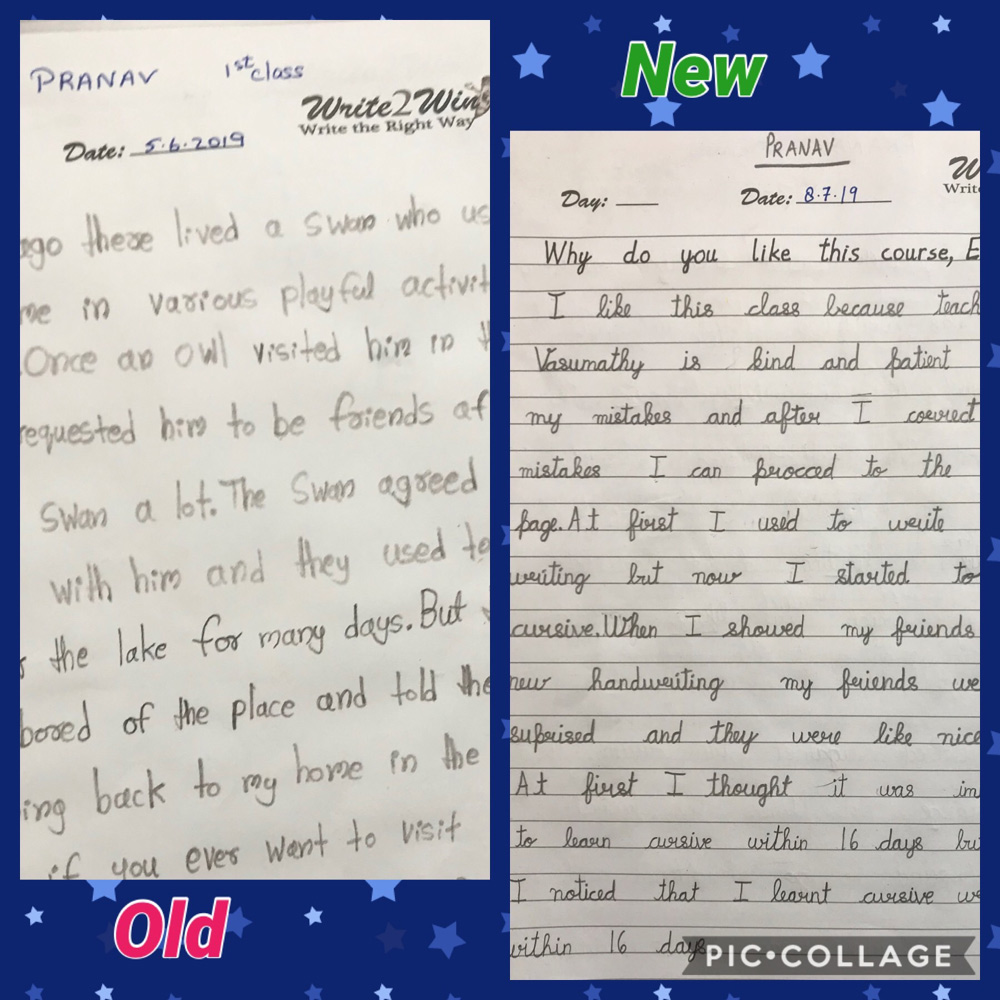 PRANAV 1st class
Write2Win
Write the Right Way
Date: 5.6.2019
ago there lived a swan who us
me in various playful activit
Once an owl visited him in th
requested him to be friends af
swan a lot. The Swan agreed
with him and they used to
the lake for many days. But
bored of the place and told the
ing back to my home in the
if you ever want to visit
Old
New
PRANAV
W
Write
Day:
Date: 8.7.19
Why do you like this course, E
I like this class because teach
Vasumathy is kind and patient
my mistakes and after I correct
mistakes I can procced to the
page. At first I used to write
writing but now I started to
cursive. When I showed my friends
new handwriting my friends we
suprised and they were like nice
At first I thought it was im
to learn cursive within 16 days but
I noticed that I learnt cursive we
within 16 days
PIC•COLLAGE